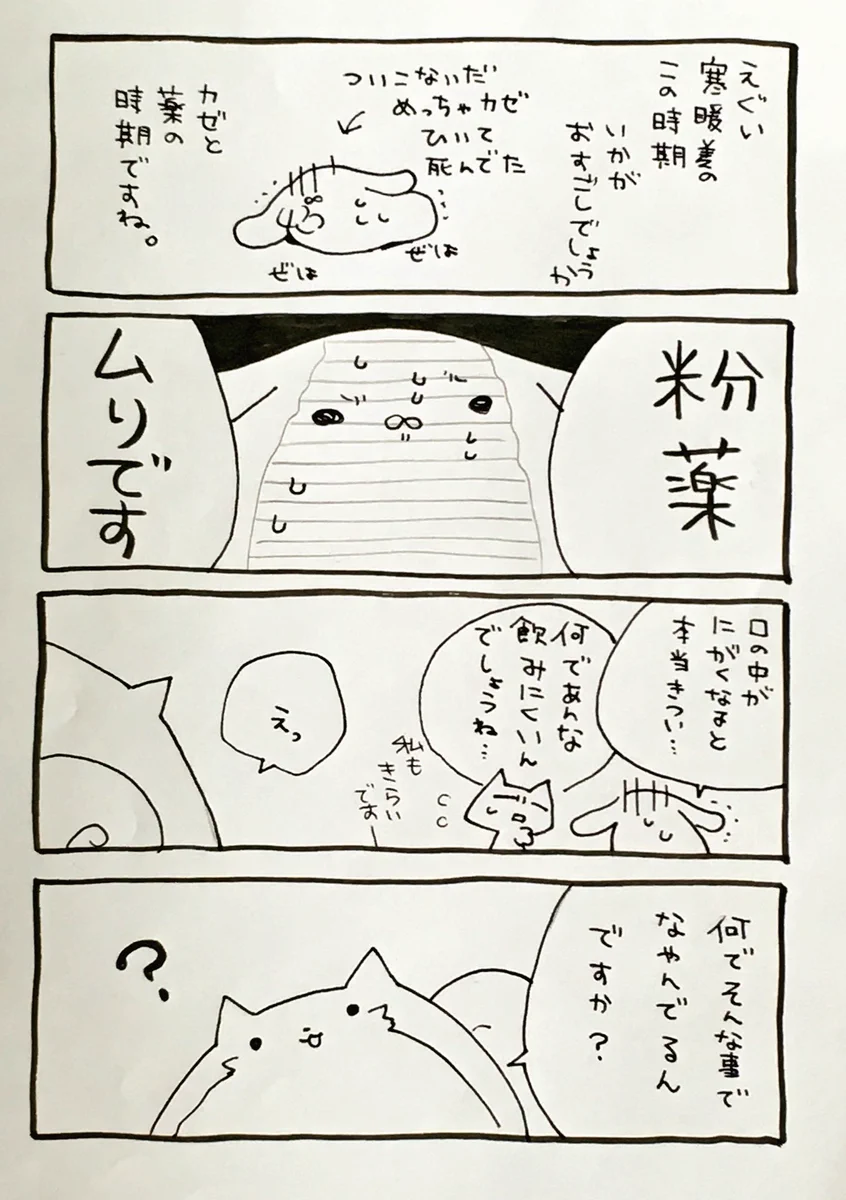 えぐい
寒暖差の
この時期
いかが
おすごしでしょうか
ついこないだ
めっちゃカゼ
ひいて
死んでた
ぜぇは
ぜぇは
カゼと
薬の
時期ですね。
粉薬
ムリです
口の中が
にがくなると
本当きつい…
何であんな
飲みにくいん
でしょうね…
私も
きらい
ですー
えっ
何でそんな事で
なやんでるん
ですか?
?